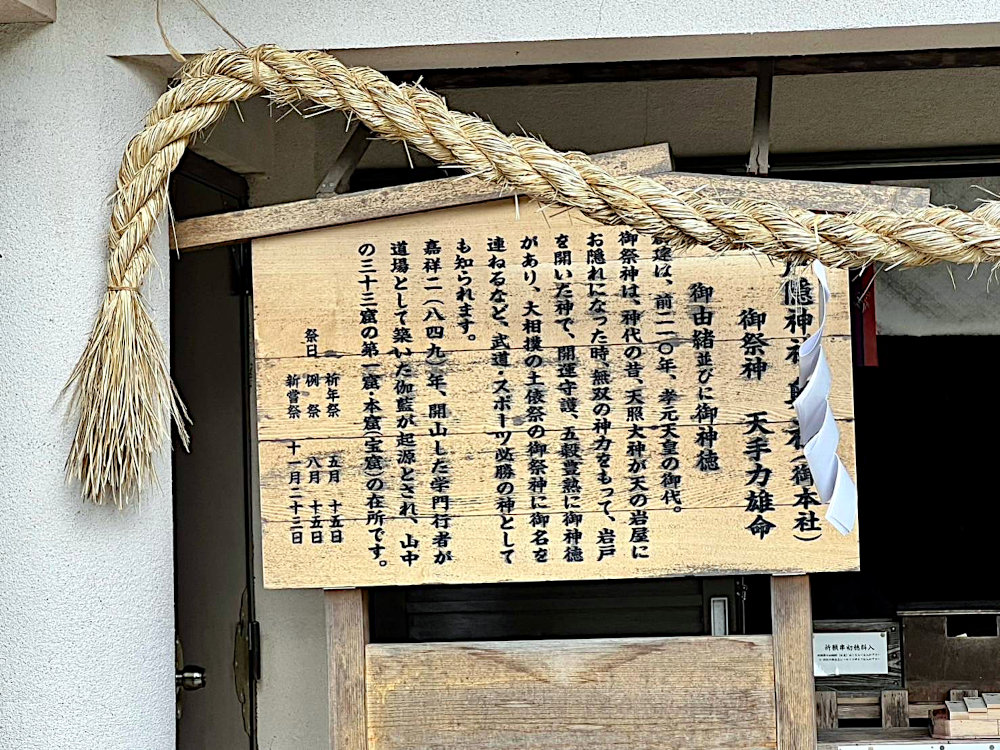 隠神社奥社(御本社)
御祭神 天手力雄命
御由緒並びに御神徳
創建は、前二一〇年、孝元天皇の御代。
御祭神は、神代の昔、天照大神が天の岩屋に
お隠れになった時、無双の神力をもって、岩戸
を開いた神で、開運守護、五穀豊熟に御神徳
があり、大相撲の土俵祭の御祭神に御名を
連ねるなど、武道・スポーツ必勝の神として
も知られます。
嘉祥二(八四九)年、開山した学門行者が
道場として築いた伽藍が起源とされ、山中
の三十三窟の第一窟・本窟(宝窟)の在所です。
祭日 祈年祭 五月 十五日
例祭 八月 十五日
新嘗祭 十一月二十三日
祈願串初穂料入